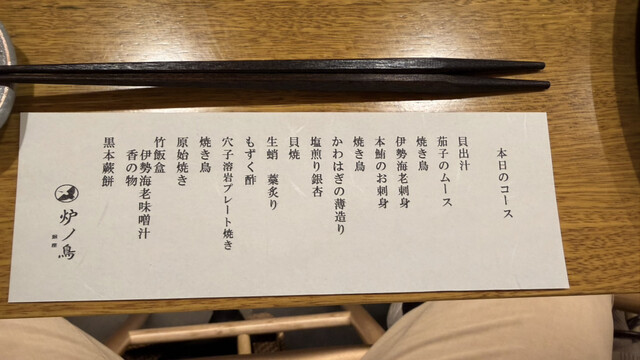 本日のコース
貝出汁
茄子のムース
焼き鳥
伊勢海老刺身
本鮪のお刺身
焼き鳥
かわはぎの薄造り
塩煎り銀杏
貝焼
生蛸 藁炙り
もずく酢
穴子溶岩プレート焼き
焼き鳥
原始焼き
竹飯盒
伊勢海老味噌汁
香の物
黒本蕨餅
炉ノ鳥
銀座